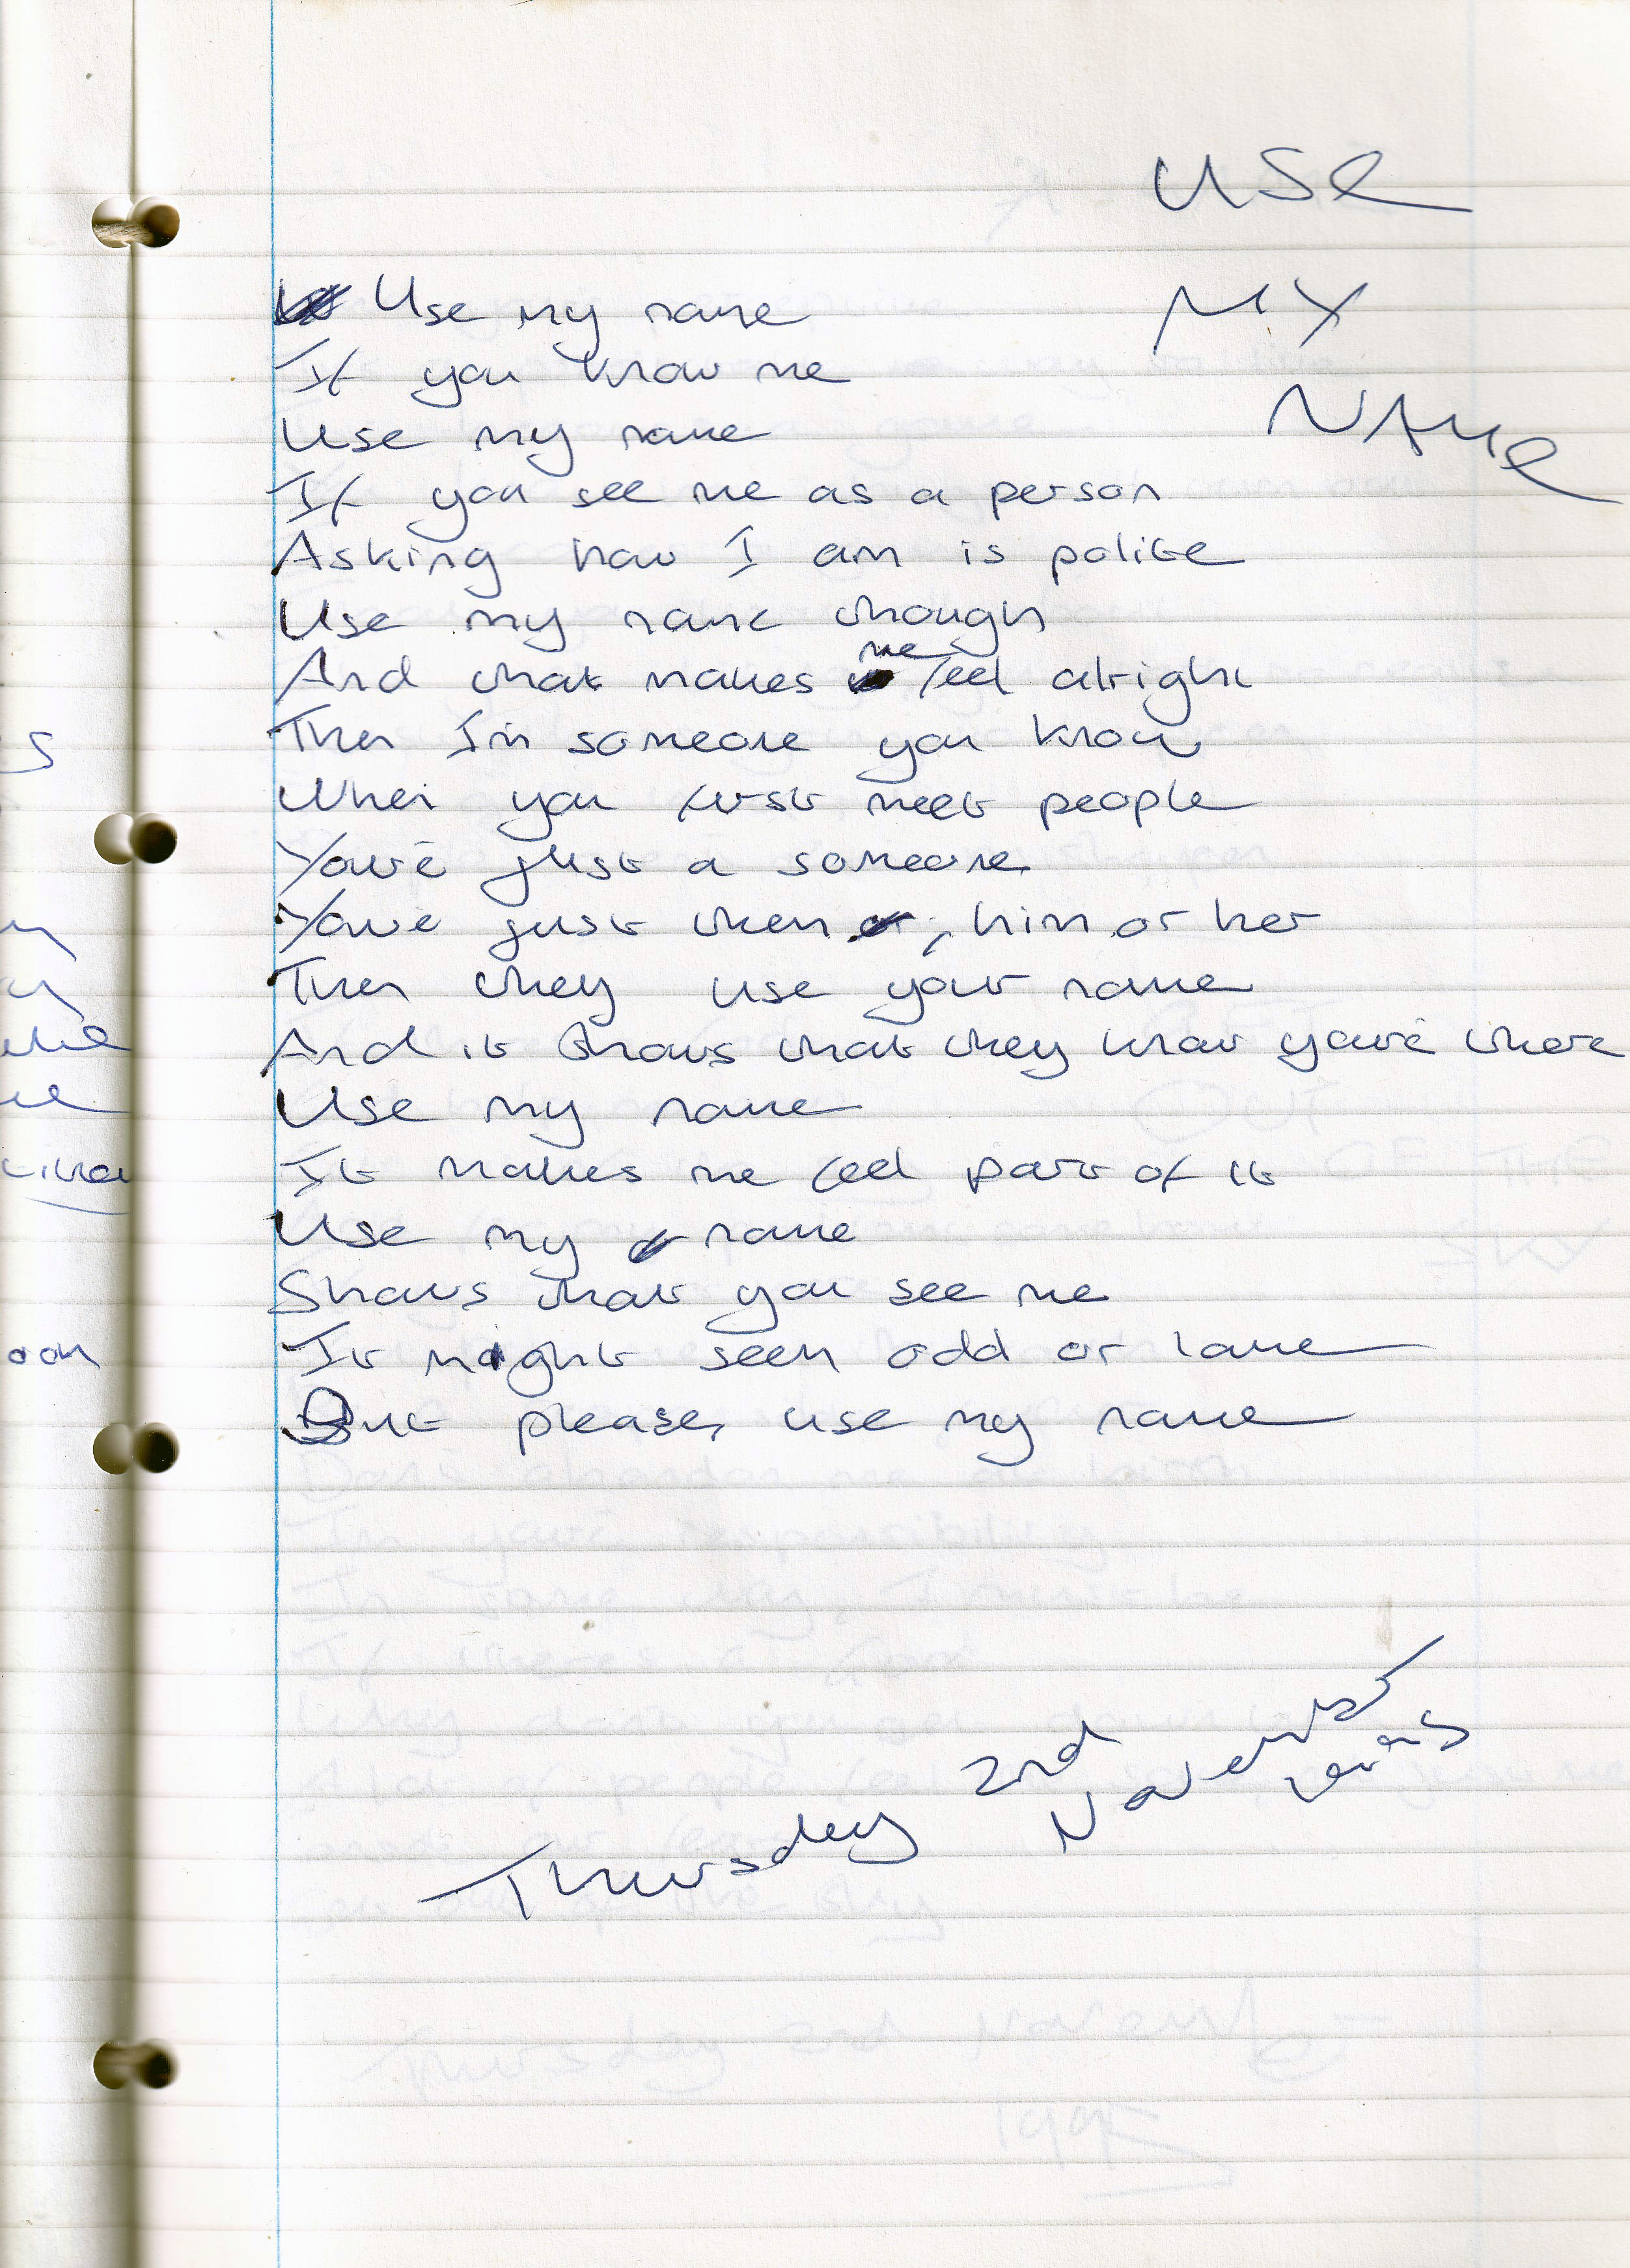 USe
MY
NAMe
Use my name
If you know me
Use my name
If you see me as a person
Asking how I am is polite
Use my name though
And that makes me feel alright
Then I'm someone you know
When you first meet people
You're just a someone
You're just them, him or her
Then they use your name
And it shows that they know you're there
Use my name
It makes me feel part of it
Use my name
Shows that you see me
It might seem odd or lame
But please, use my name
Thursday 2nd
November
1995